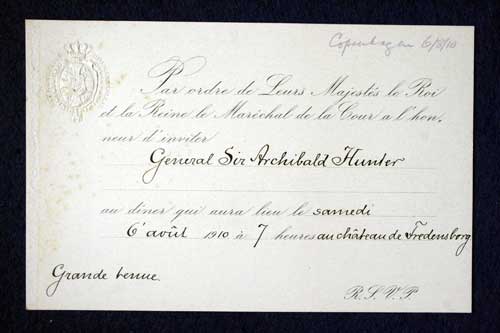 Copenhagen 6/8/10
Par ordre de Leurs Majestés le Roi
et la Reine le Maréchal de la Cour a l'hon,
neur d'inviter
General Sir Archibald Hunter
au dîner qui aura lieu le samedi
6 août 1910 à 7 heures au château de Fredensborg
Grande tenue.
R.S.V.P.